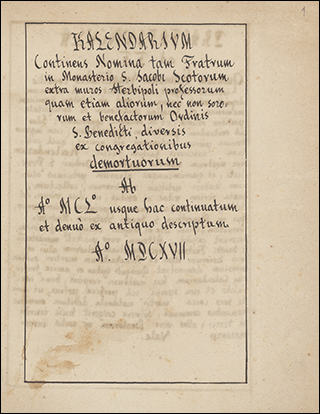 1
KALENDARIVM
Continens Nomina tam Fratrum
in Monasterio S. Jacobi Scotorum
extra muros Herbipoli professorum
quam etiam aliorum, nec non soro-
rum et benefactorum Ordinis
S. Benedicti, diversis
ex congregationibus
demortuorum
Ab
Aº MCLº usque hac continuatum
et denuò ex antiquo descriptum
Aº. MDCXVII